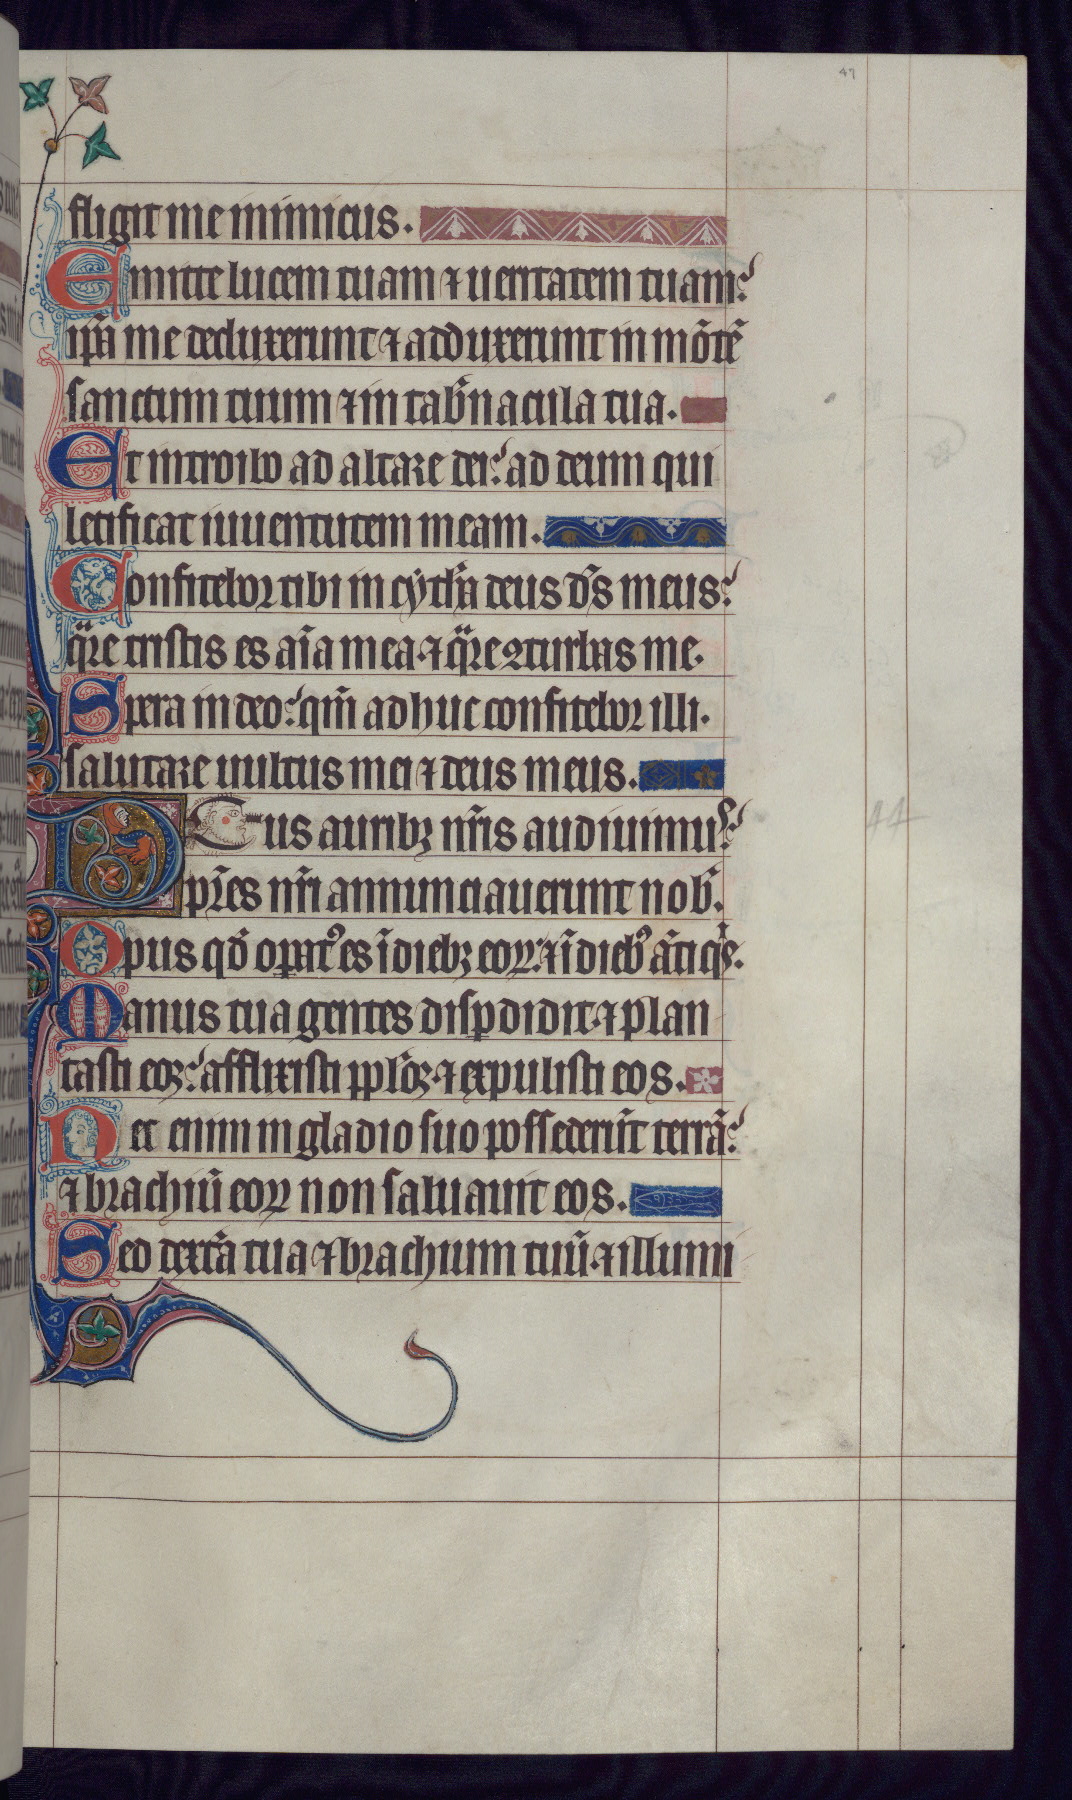 47
fligit me inimicus.
Emitte lucem tuam ⁊ ueritatem tuam:
ip̄a me deduxerunt ⁊ adduxerunt in mōtē
sanctum tuum ⁊ in tab̄nacula tua.
Et introibo ad altare dei: ad deum qui
letificat iuuentutem meam.
Confitebor tibi in cẏth̄a deus dn̄s meus:
q̄re tristis es aīa mea. ⁊ q̄re ꝯturbas me.
Spera in deo: qm̄ adhuc confitebor illi.
salutare uultus mei ⁊ deus meus.
Deus auribꝫ nr̄is audiuimus:
pr̄es nr̄i annunciauerunt nob̄.
Opus qd̄ oꝑat᷒ es ī diebꝫ eoꝝ: ⁊ ī dieb᷒ āti q̄s.
Manus tua gentes disꝑdidit. ⁊ plan
tasti eoꝫ: afflixisti ppl̄oꝫ. ⁊ expulisti eos.
Nec enim in gladio suo possederūt terrā:
⁊ brachiū eoꝝ non saluauit eos.
Sed dext̄a tua ⁊ brachium tuū. ⁊ illumi
44